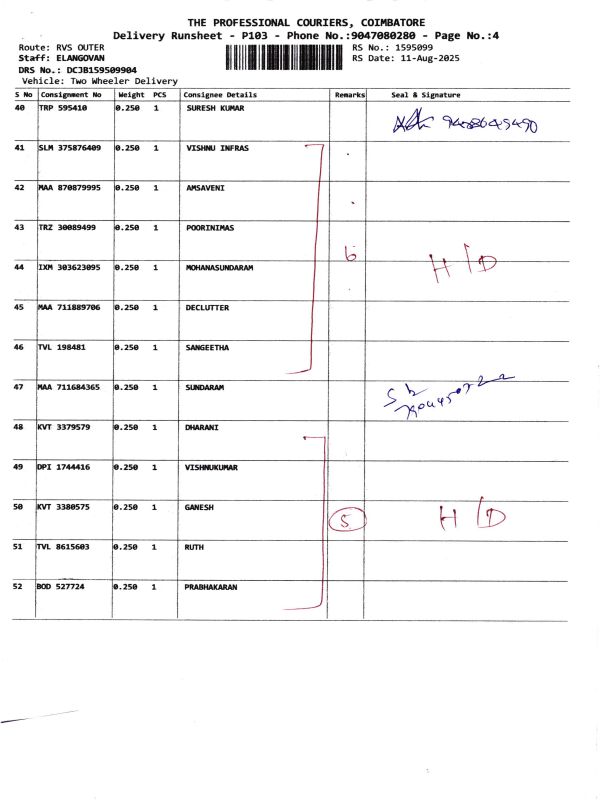 THE PROFESSIONAL COURIERS, COIMBATORE
Delivery Runsheet - P103 - Phone No.:9047080280 - Page No.:4
Route: RVS OUTER
RS No.: 1595099
Staff: ELANGOVAN
RS Date: 11-Aug-2025
DRS No.: DCJB159509904
Vehicle: Two Wheeler Delivery
S No Consignment No Weight PCS Consignee Details Remarks Seal & Signature
40 TRP 595410 0.250 1 SURESH KUMAR
41 SLM 375876409 0.250 1 VISHNU INFRAS
42 MAA 870879995 0.250 1 AMSAVENI
43 TRZ 30089499 0.250 1 POORINIMAS
6 H/D
44 IXM 303623095 0.250 1 MOHANASUNDARAM
45 MAA 711889706 0.250 1 DECLUTTER
46 TVL 198481 0.250 1 SANGEETHA
47 MAA 711684365 0.250 1 SUNDARAM
48 KVT 3379579 0.250 1 DHARANI
49 DPI 1744416 0.250 1 VISHNUKUMAR
50 KVT 3380575 0.250 1 GANESH 5 H/D
51 TVL 8615603 0.250 1 RUTH
52 BOD 527724 0.250 1 PRABHAKARAN